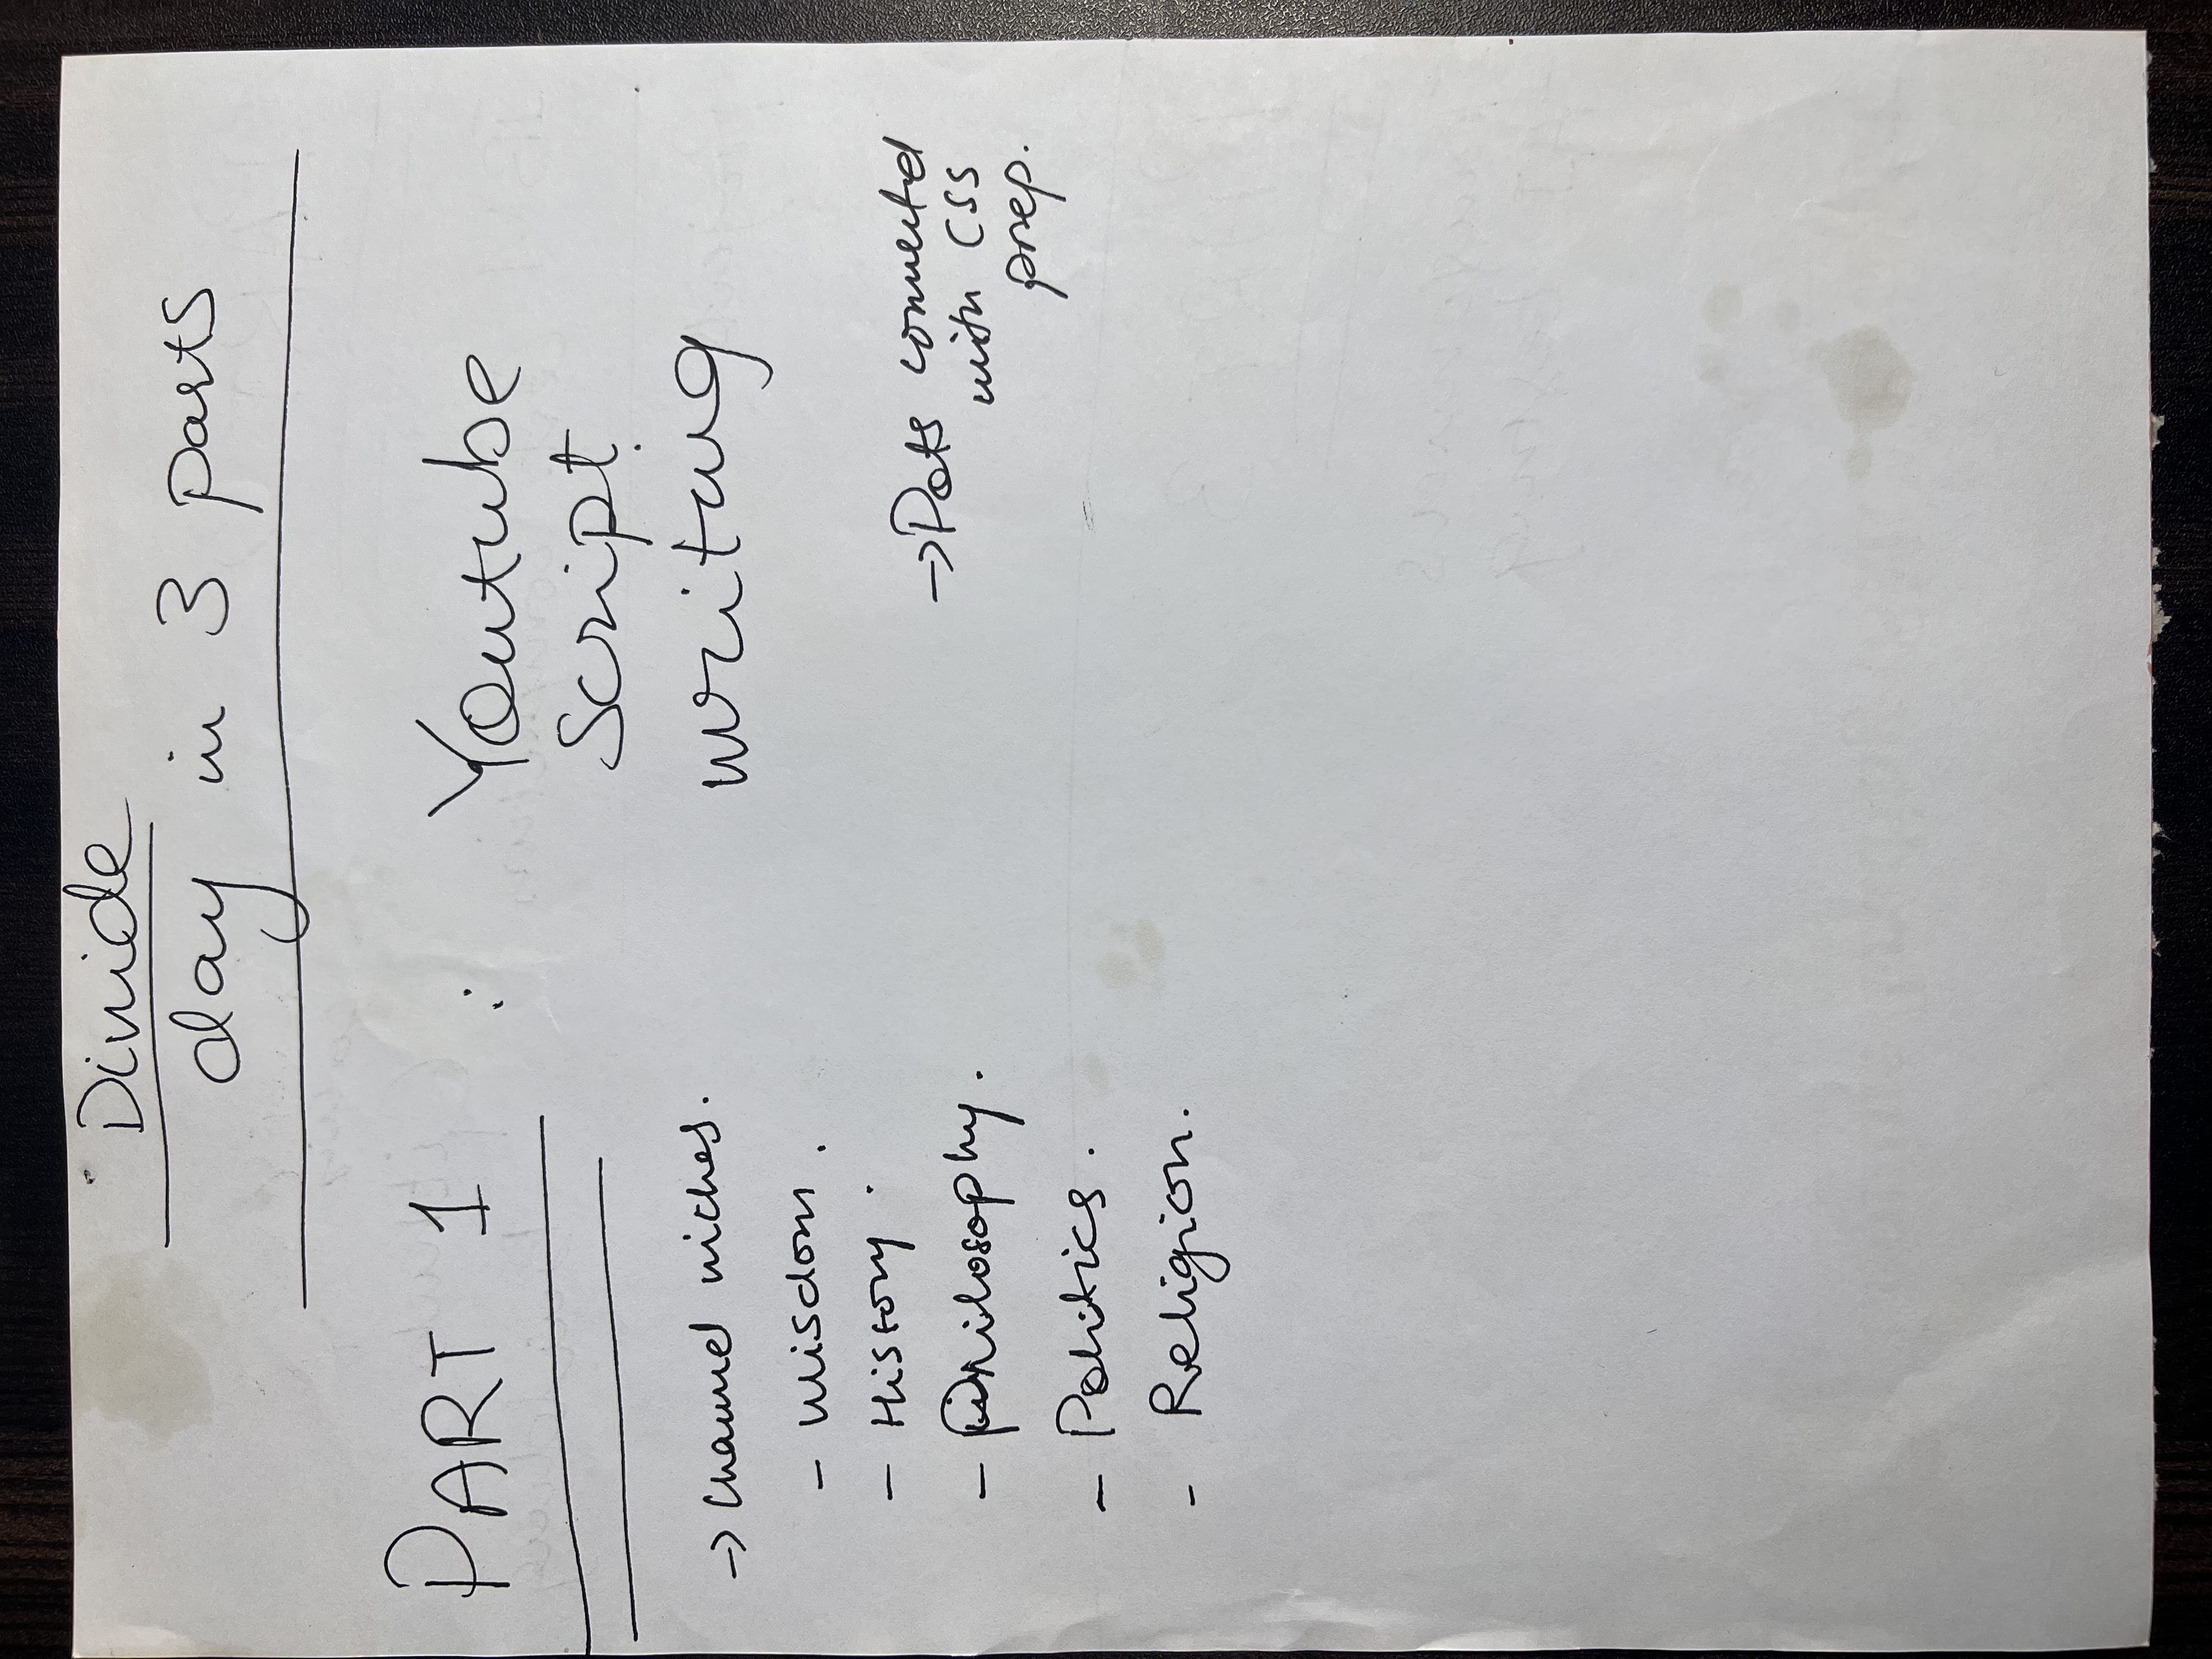 Divide
day in 3 parts
PART 1 : Youtube
Script
writing
→ Channel niches.
- Wisdom.
- History.
- Philosophy.
- Politics.
- Religion.
→ connected
with CSS
prep.